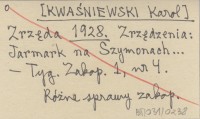 [KWAŚNIEWSKI Karol]
Zrzęda 1928. Zrzędzenia:
Jarmark na Szymonach...
— Tyg. Zakop. 1, nr 4.
Różne sprawy zakop.